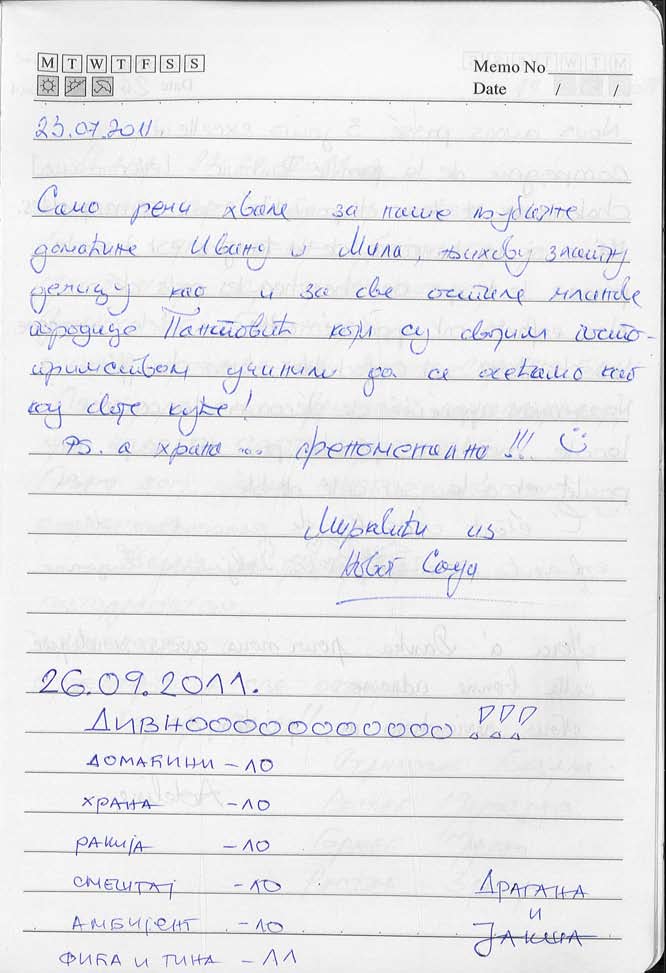 M T W T F S S
Memo No
Date / /
23.07.2011
Само речи хвале за наше љубазне
домаћине Ивану и Мила, њихову златну
децицу као и за све остале чланове
породице Пантовић који су својим госто-
примством учинили да се осећамо као
код своје куће!
PS. а храна ... феноменална!!!
из
Новог Сада
26.09.2011.
ДИВНОООООООООООО !!!
ДОМАЋИНИ - 10
ХРАНА - 10
РАКИЈА - 10
СМЕШТАЈ - 10
АМБИЈЕНТ - 10
ФИЋА И ТИНА - 11
ДРАГАНА
И
ЈАКША